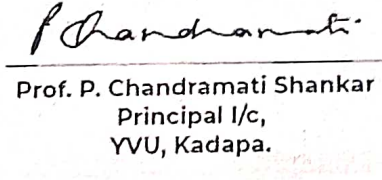 P Chandramati
Prof. P. Chandramati Shankar
Principal I/c,
YVU, Kadapa.